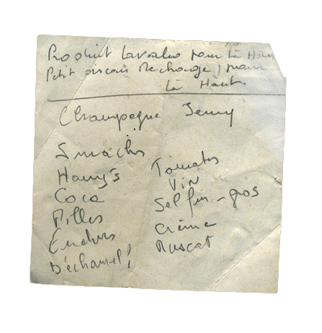 Produit lavabo pour la Hau
Petit oiseau Recharge, pour
la Haut
Champagne Jenny
Smacks
Harry's
Coca
Pilles
Endives
Béchamel
Tomates
Vin
Sel fin - gros
Crème
Muscat